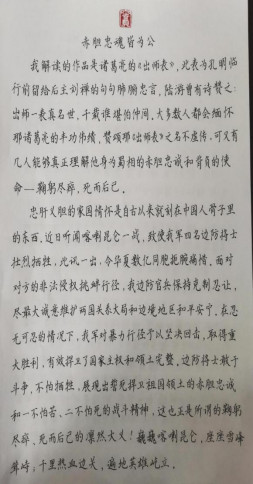 赤胆忠魂皆为公
我解读的作品是诸葛亮的《出师表》，此表为孔明临
行前留给后主刘禅的句句肺腑忠言，陆游曾有诗赞之：
出师一表真名世，千载谁堪伯仲间。大多数人都会缅怀
耶诸葛亮的丰功伟绩，赞颂耶《出师表》之名不虚传，可又有
几人能够真正理解他身为蜀相的赤胆忠诚和背负的使
命—鞠躬尽瘁，死而后已。
忠肝义胆的家国情怀是自古以来就刻在中国人骨子里
的东西，近日听闻喀喇昆仑一战，致使我军四名边防将士
壮烈牺牲，此讯一出，令华夏数亿同胞扼腕痛惜，面对
对方的非法侵权挑衅行径，我边防官兵保持克制忍让，
尽最大诚意维护两国关系大局和边境地区和平安宁，在忍
无可忍的情况下，我军对暴力行径予以坚决回击，取得重
大胜利，有效捍卫了国家主权和领土完整。边防将士敢于
斗争，不怕牺牲，展现出誓死捍卫祖国领土的赤胆忠诚
和一不怕苦、二不怕死的战斗精神，这也正是所谓的鞠躬
尽瘁，死而后已的凛然大义！巍巍喀喇昆仑，座座雪峰
耸峙；十里热血边关，遍地英雄屹立。